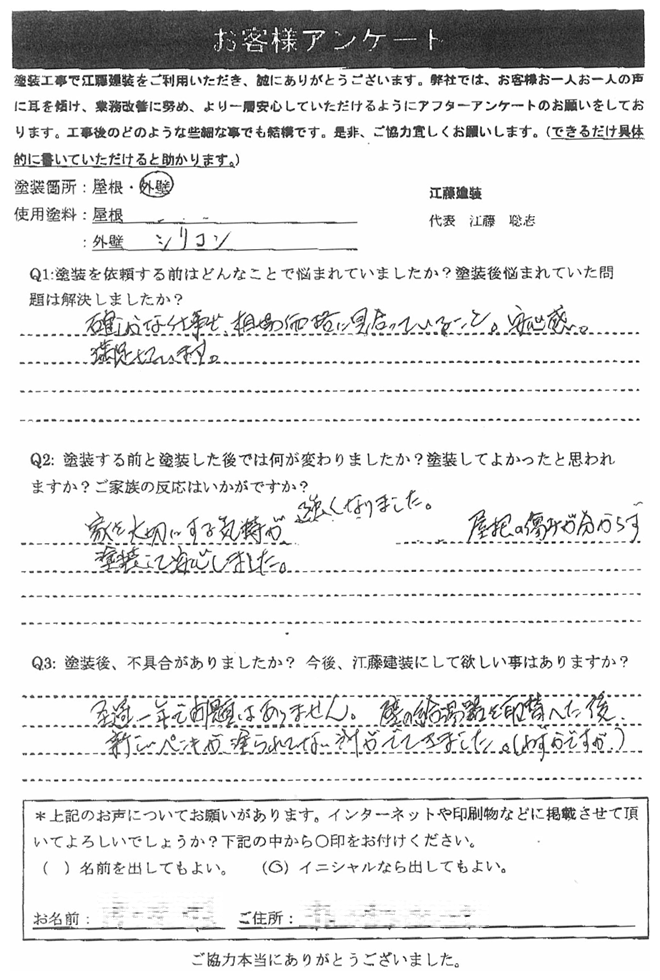 お客様アンケート
塗装工事で江藤建装をご利用いただき、誠にありがとうございます。弊社では、お客様お一人お一人の声
に耳を傾け、業務改善に努め、より一層安心していただけるようにアフターアンケートのお願いをしてお
ります。工事後のどのような些細な事でも結構です。是非、ご協力宜しくお願いします。(できるだけ具体
的に書いていただけると助かります。)
塗装箇所：屋根・外壁
江藤建装
使用塗料：屋根
代表 江藤 聡志
：外壁 シリコン
Q1:塗装を依頼する前はどんなことで悩まれていましたか？塗装後悩まれていた問
題は解決しましたか？
確かな仕事と、相場価格に見合っていること。安心感。
満足しています。
Q2: 塗装する前と塗装した後では何が変わりましたか？塗装してよかったと思われ
ますか？ご家族の反応はいかがですか？
家を大切にする気持が 強くなりました。 屋根の傷みが分からず
塗装して安心しました。
Q3: 塗装後、不具合がありましたか？ 今後、江藤建装にして欲しい事はありますか？
一年も問題はありません。 壁の給湯器を取替へた後、
新しいペンキが塗られてない所がでてきました。(わずかですが)
＊上記のお声についてお願いがあります。インターネットや印刷物などに掲載させて頂
いてよろしいでしょうか？下記の中から〇印をお付けください。
（ ）名前を出してもよい。 （○）イニシャルなら出してもよい。
お名前： ご住所：
ご協力本当にありがとうございました。